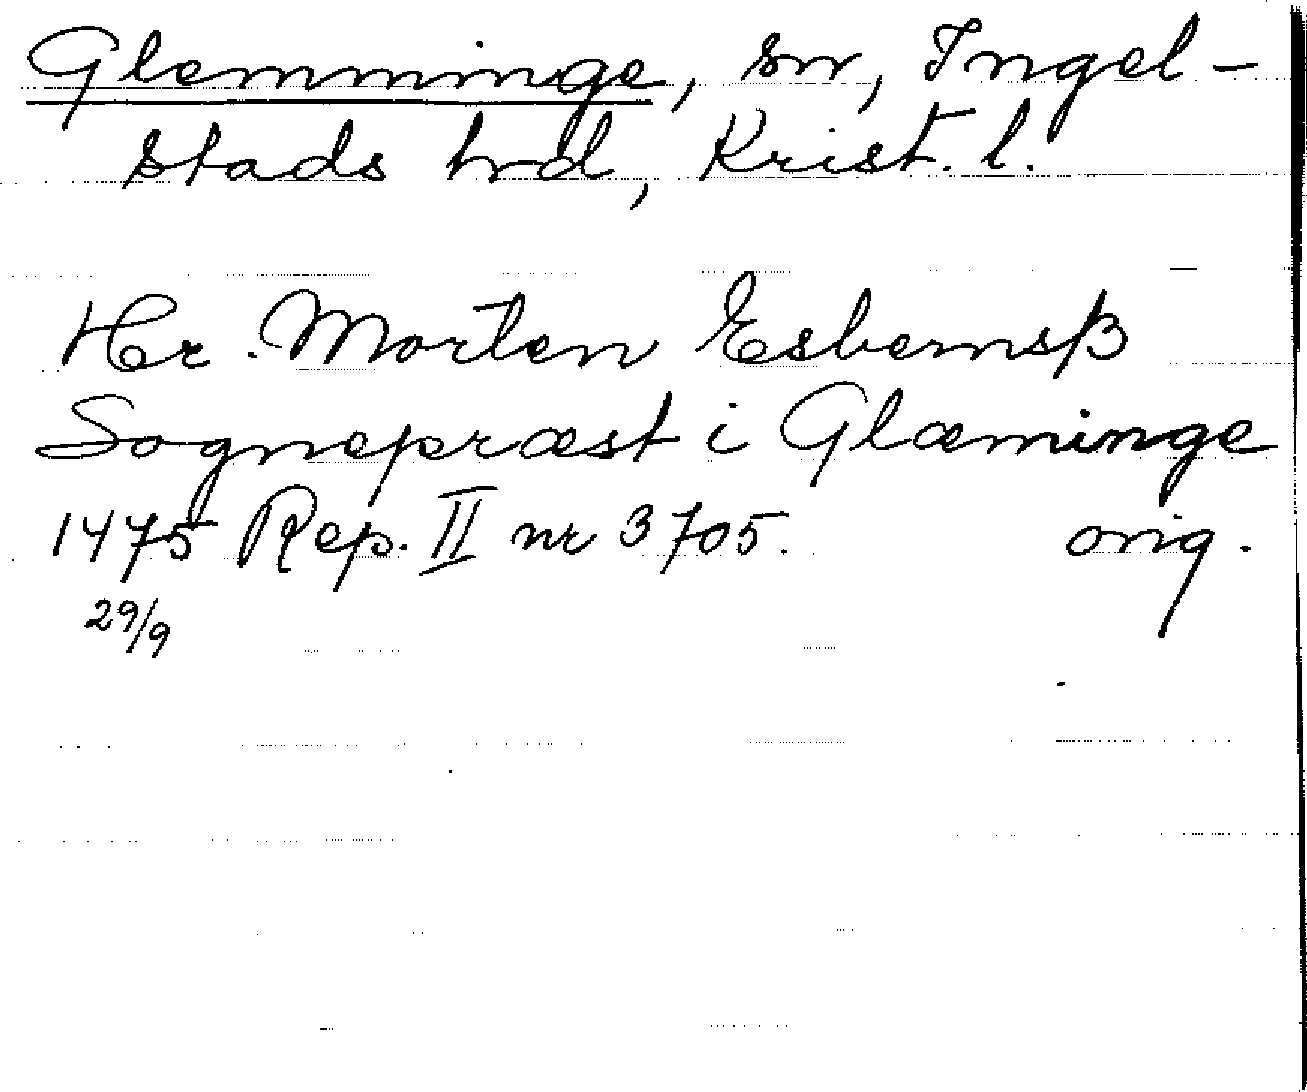 Glemminge, sn, Ingel-
stads hrd, Krist. l.
Hr. Morten Esbernsß
Sognepræst i Glæminge
1475 Rep. II nr 3705. orig.
29/9